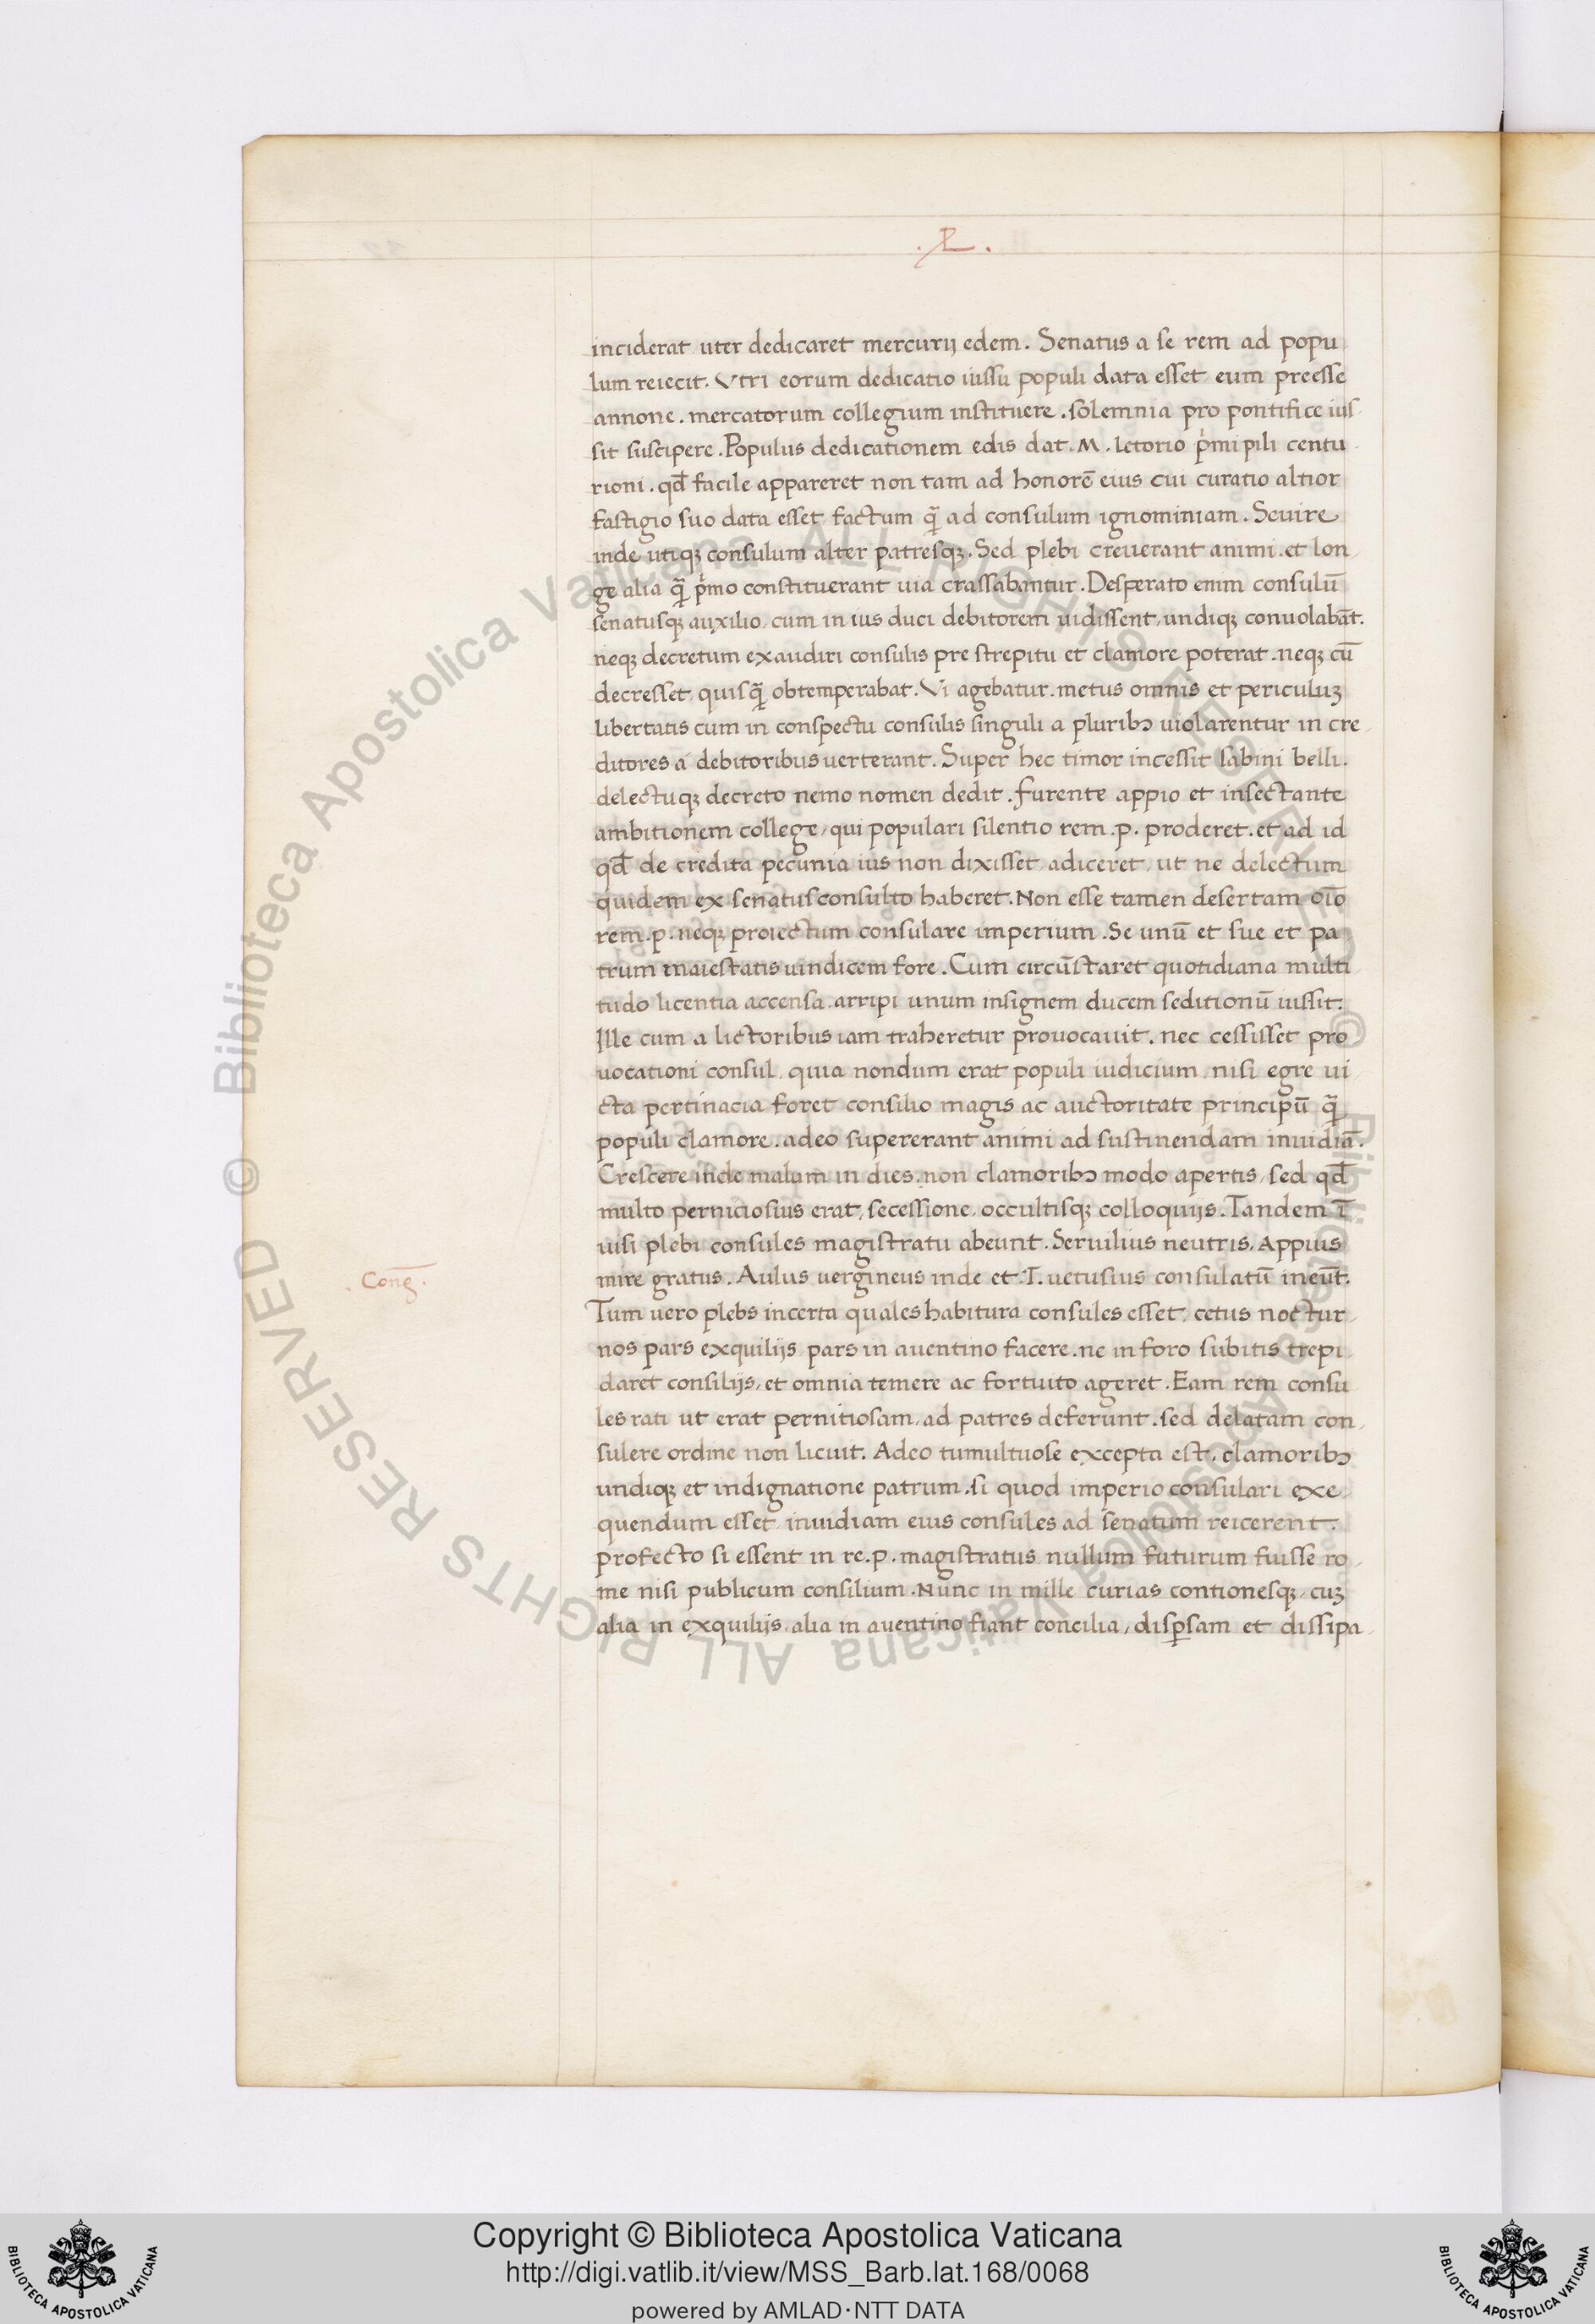 .L.
inciderat uter dedicaret mercurij edem. Senatus a se rem ad popu
lum reiecit. Vtri eorum dedicatio iussu populi data esset eum preesse
annone. mercatorum collegium instituere. solemnia pro pontifice ius
sit suscipere. Populus dedicationem edis dat. M. letorio p̍mi pili centu
rioni. qd̄ facile appareret non tam ad honorē eius cui curatio altior
fastigio suo data esset factum q̄ ad consulum ignominiam. Seuire
inde utiqꝫ consulum alter patresqꝫ. Sed plebi creuerant animi. et lon
ge alia q̄ p̍mo constituerant uia crassabantur. Desperato enim consulū
senatusqꝫ auxilio, cum in ius duci debitorem uidissent, undiqꝫ conuolabāt.
neqꝫ decretum exaudiri consulis pre strepitu et clamore poterat. neqꝫ cū
decresset, quisq̄ obtemperabat. Vi agebatur. metus omnis et periculuꝫ
libertatis cum in conspectu consulis singuli a pluribꝫ uiolarentur in cre
ditores a debitoribus uerterant. Super hec timor incessit sabini belli.
delectuqꝫ decreto nemo nomen dedit. furente appio et insectante
ambitionem college, qui populari silentio rem. p. proderet. et ad id
qd̄ de credita pecunia ius non dixisset, adiceret, ut ne delectum
quidem ex senatusconsulto haberet. Non esse tamen desertam oīo
rem. p. neqꝫ proiectum consulare imperium. Se unū et sue et pa
trum maiestatis uindicem fore. Cum circūstaret quotidiana multi
tudo licentia accensa. arripi unum insignem ducem seditionū iussit.
Ille cum a lictoribus iam traheretur prouocauit. nec cessisset pro
uocationi consul, quia nondum erat populi iudicium, nisi egre ui
cta pertinacia foret consilio magis ac auctoritate principū q̄
populi clamore. adeo supererant animi ad sustinendam inuidiā.
Crescere inde malum in dies. non clamoribꝫ modo apertis, sed qd̄
multo perniciosius erat, secessione, occultisqꝫ colloquijs. Tandem ī
uisi plebi consules magistratu abeunt. Seruilius neutris, Appius
mire gratus. Aulus uergineus inde et. T. uetusius consulatū ineūt.
Tum uero plebs incerta quales habitura consules esset, cetus noctur
nos pars exquilijs pars in auentino facere. ne in foro subitis trepi
daret consilijs, et omnia temere ac fortuito ageret. Eam rem consu
les rati ut erat pernitiosam, ad patres deferunt. sed delatam con
sulere ordine non licuit. Adeo tumultuose excepta est, clamoribꝫ
undiqꝫ et indignatione patrum. si quod imperio consulari exe
quendum esset, inuidiam eius consules ad senatum reicerent.
profecto si essent in re. p. magistratus nullum futurum fuisse ro
me nisi publicum consilium. Nunc in mille curias contionesqꝫ, cuꝫ
alia in exquilijs, alia in auentino fiant concilia, disꝑsam et dissipa
© Biblioteca Apostolica Vaticana ALL RIGHTS RESERVED
© Biblioteca Apostolica Vaticana ALL RIGHTS RESERVED
Copyright © Biblioteca Apostolica Vaticana
http://digi.vatlib.it/view/MSS_Barb.lat.168/0068
powered by AMLAD·NTT DATA
BIBLIOTECA APOSTOLICA VATICANA
BIBLIOTECA APOSTOLICA VATICANA